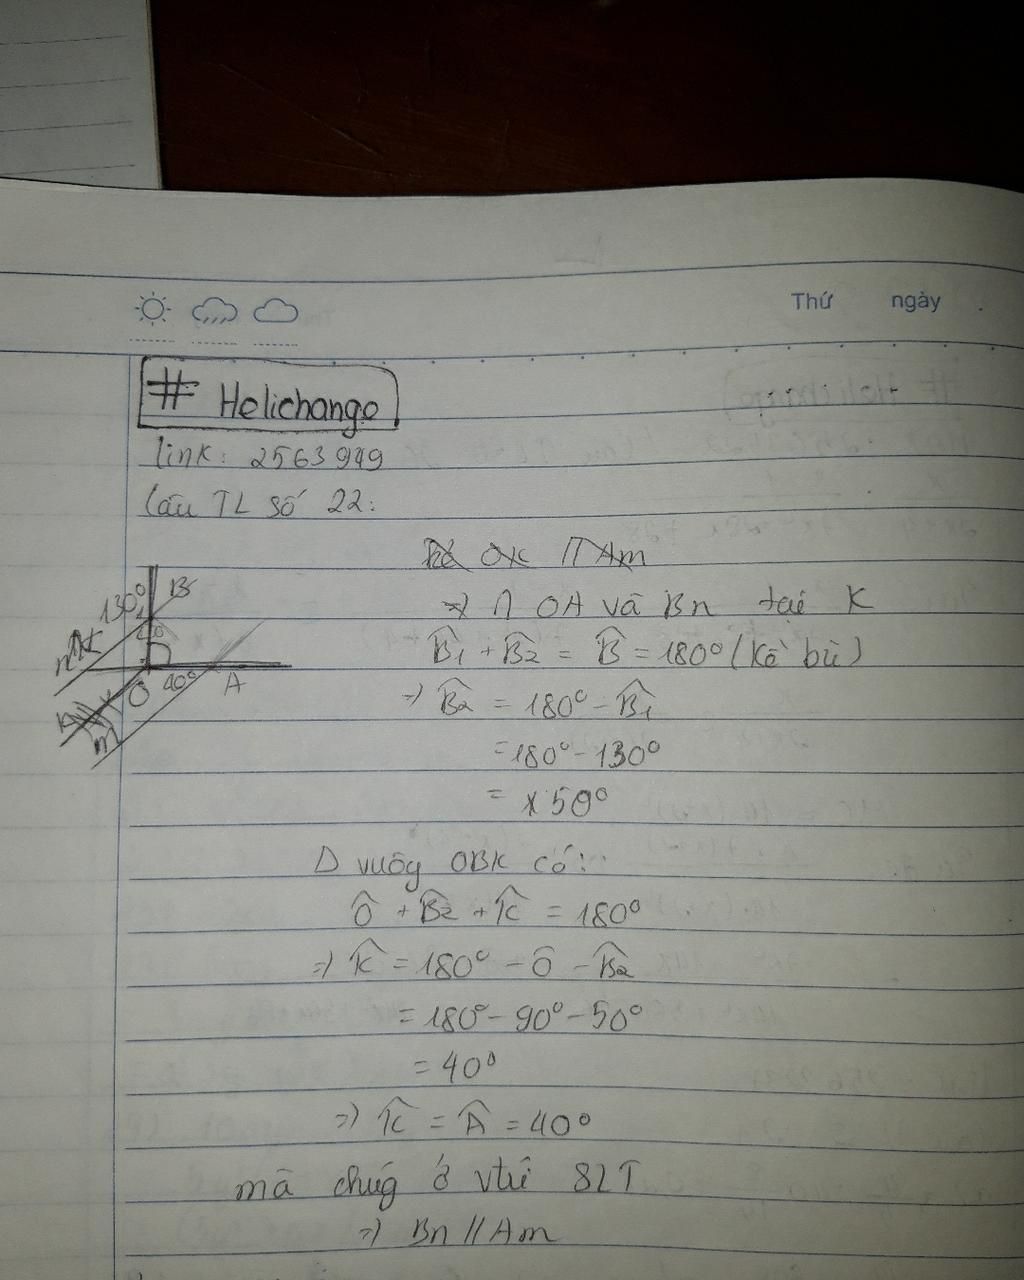 Thứ ngày
# Helichango
link: 2563949
Câu TL số 22:
Kẻ OK // Am
=> ∩ OA và Bn tại K
130° B
n K
O 40° A
m
B̂1 + B̂2 = B̂ = 180° (kề bù)
=> B̂2 = 180° - B̂1
= 180° - 130°
= 50°
Δ vuông OBK có:
Ô + B̂2 + K̂ = 180°
=> K̂ = 180° - Ô - B̂2
= 180° - 90° - 50°
= 40°
=> K̂ = Â = 40°
mà chúg ở vtrí SLT
=> Bn // Am